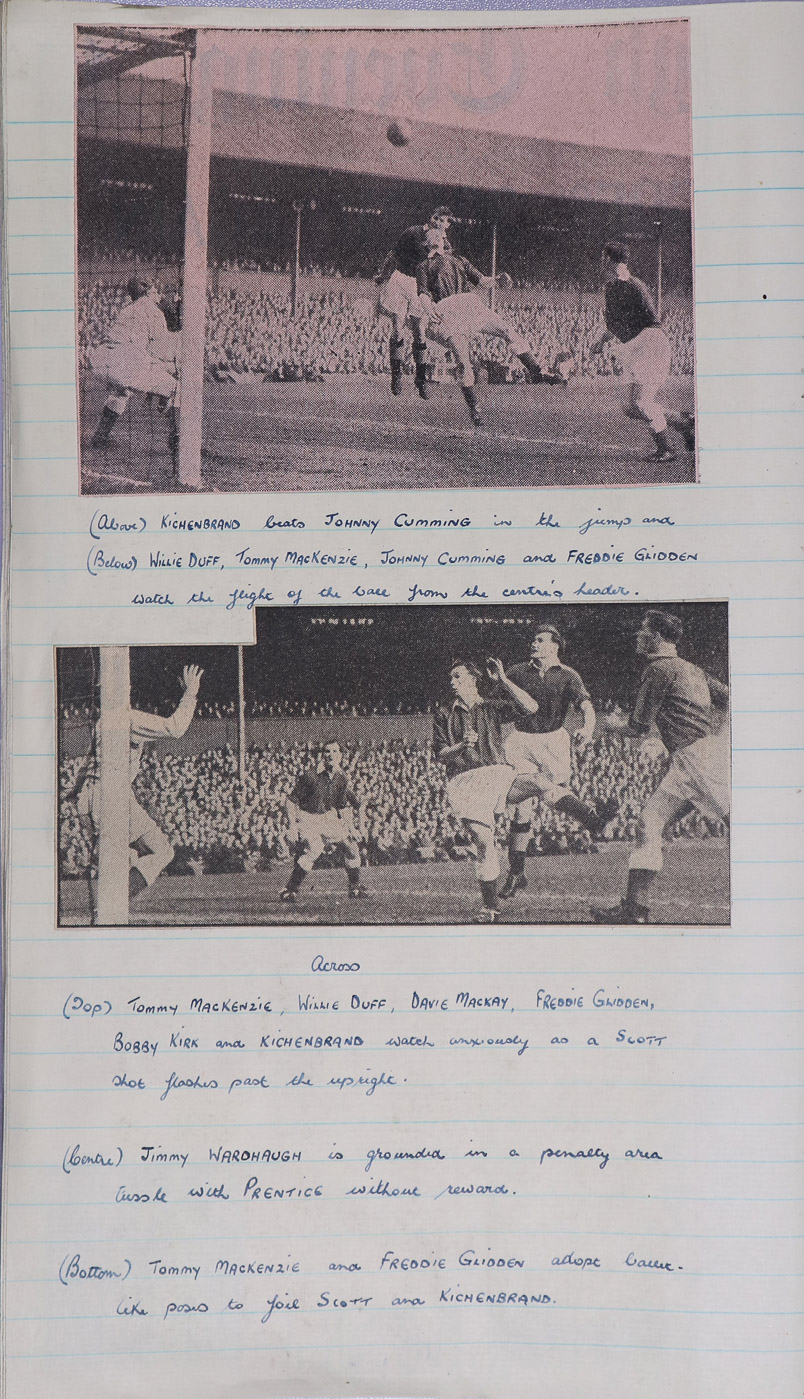 (Above) KICHENBRAND beats JOHNNY CUMMING in the jump and
(Below) WILLIE DUFF, TOMMY MACKENZIE, JOHNNY CUMMING and FREDDIE GLIDDEN
watch the flight of the ball from the centre's header.
Across
(Top) TOMMY MACKENZIE, WILLIE DUFF, DAVIE MACKAY, FREDDIE GLIDDEN,
BOBBY KIRK and KICHENBRAND watch anxiously as a SCOTT
shot flashes past the upright.
(Centre) JIMMY WARDHAUGH is grounded in a penalty area
tussle with PRENTICE without reward.
(Bottom) TOMMY MACKENZIE and FREDDIE GLIDDEN adopt ballet-
like poses to foil SCOTT and KICHENBRAND.